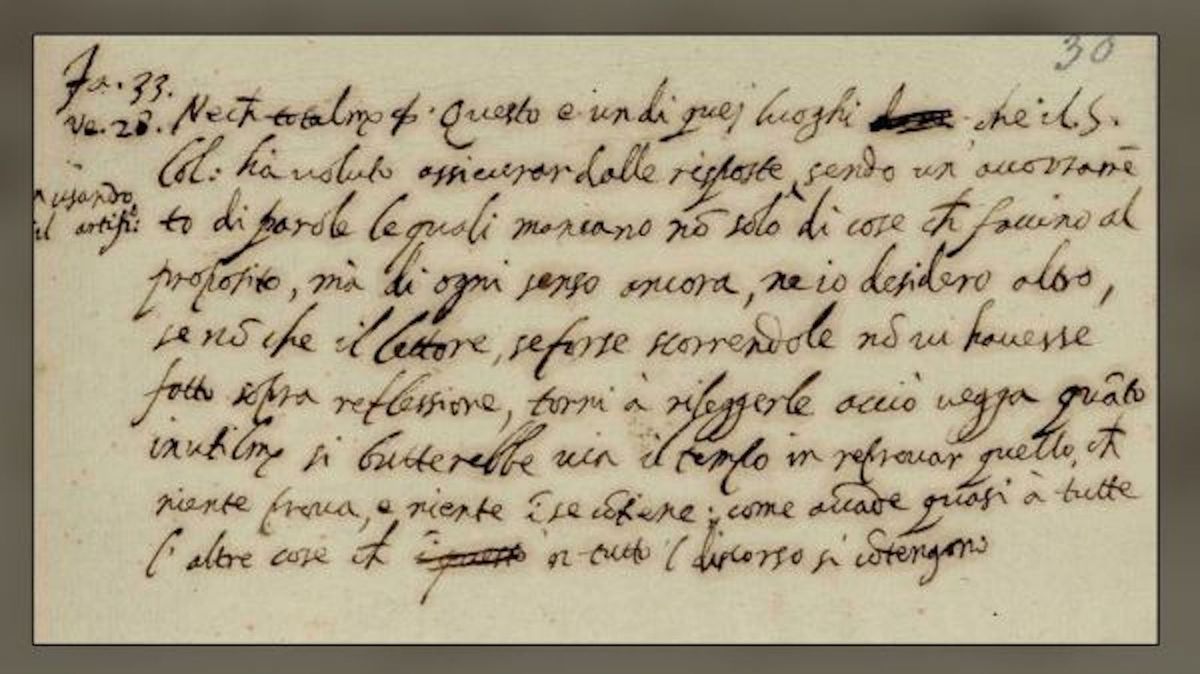 30
Fa. 33.
Ve. 28. Ne ch̃ totalm̃ Questo e un di quej luoghi che il S.
Col: hà voluto assicurar dalle risposte, sendo un'
n usando
il artifi:
to di parole le quali mancano nõ solo di cose ch̃ faccino al
proposito, mà di ogni senso ancora, ne io desidero altro,
se nõ che il lettore, se forse scorrendole nõ vi havesse
fatto sopra reflessione, torni à rileggerle acciò vegga quãto
inutilm̃ si butterebbe via il tempo in reprovar quello, ch̃
niente prova, e niente ĩ se cõtiene; come accade quasi à tutte
l' altre cose ch̃ ĩ questo in tutto l discorso si cõtengono